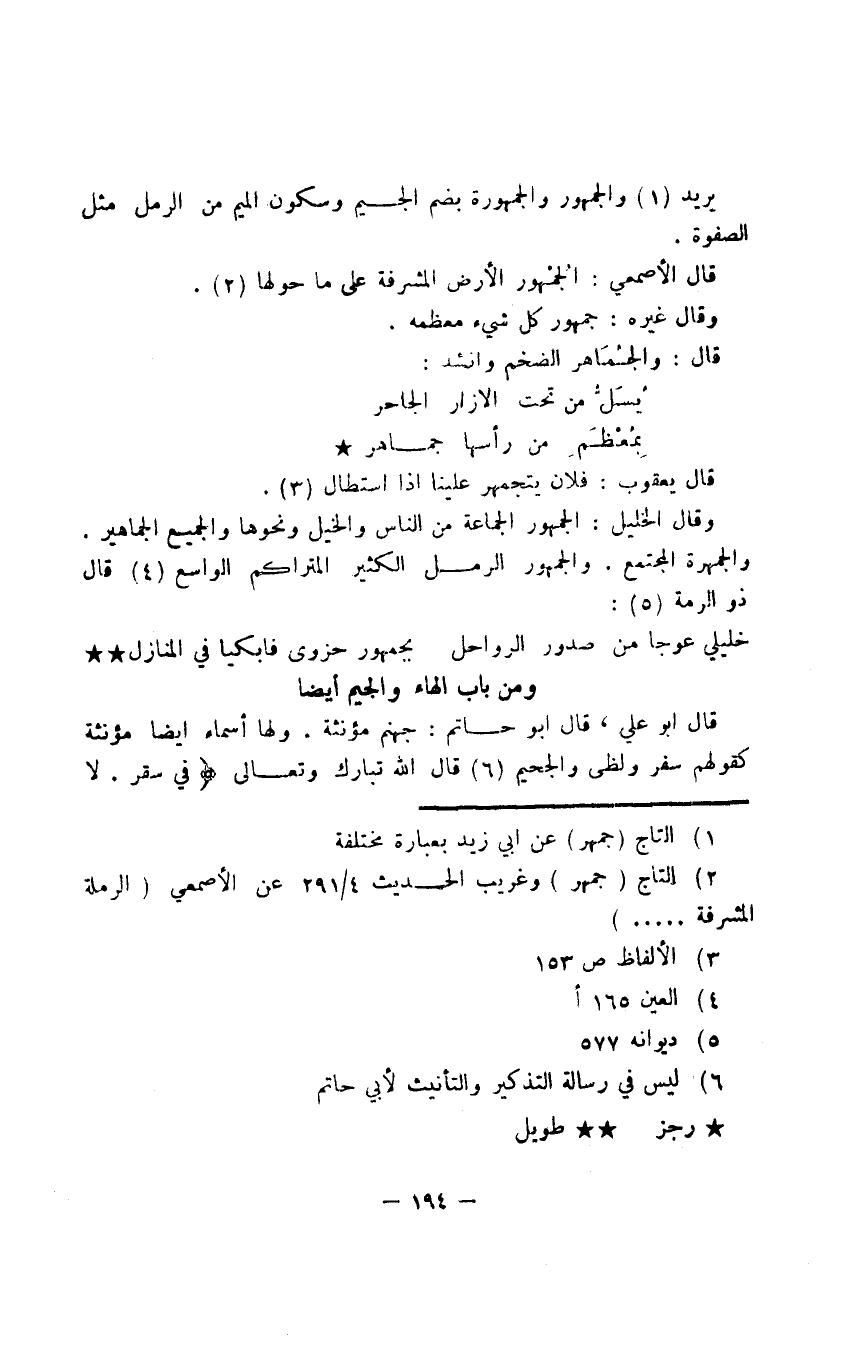 يريد (١) والجمهور والجمهورة بضم الجـــيم وسكون الميم من الرمل مثل
الصفوة .
قال الأصمعي : الجُمْهور الأرض المشرفة على ما حولها (٢) .
وقال غيره : جمهور كل شيء معظمه .
قال : والجُمَاهر الضخم وانشد :
يُسَلُّ من تحت الازار الجاحر
بِمُعْظَمٍ من رأسها جمـــاهر ★
قال يعقوب : فلان يتجمهر علينا اذا استطال (٣) .
وقال الخليل : الجمهور الجماعة من الناس والخيل ونحوها والجميع الجماهير .
والجمهرة المجتمع . والجمهور الرمـــل الكثير المتراكم الواسع (٤) قال
ذو الرمة (٥) :
خليلي عوجا من صدور الرواحل بجمهور حزوى فابكيا في المنازل★★
ومن باب الهاء والجيم أيضا
قال ابو علي ، قال ابو حـــاتم : جهنم مؤنثة . ولها أسماء ايضا مؤنثة
كقولهم سفر ولظى والجحيم (٦) قال الله تبارك وتعـــالى ﴿ في سقر . لا
١) التاج (جمهر) عن ابي زيد بعبارة مختلفة
٢) التاج ( جمهر ) وغريب الحـــديث ٢٩١/٤ عن الأصمعي ( الرملة
المشرفة ..... )
٣) الألفاظ ص ١٥٣
٤) العين ١٦٥ أ
٥) ديوانه ٥٧٧
٦) ليس في رسالة التذكير والتأنيث لأبي حاتم
★ رجز ★★ طويل
— ١٩٤ —